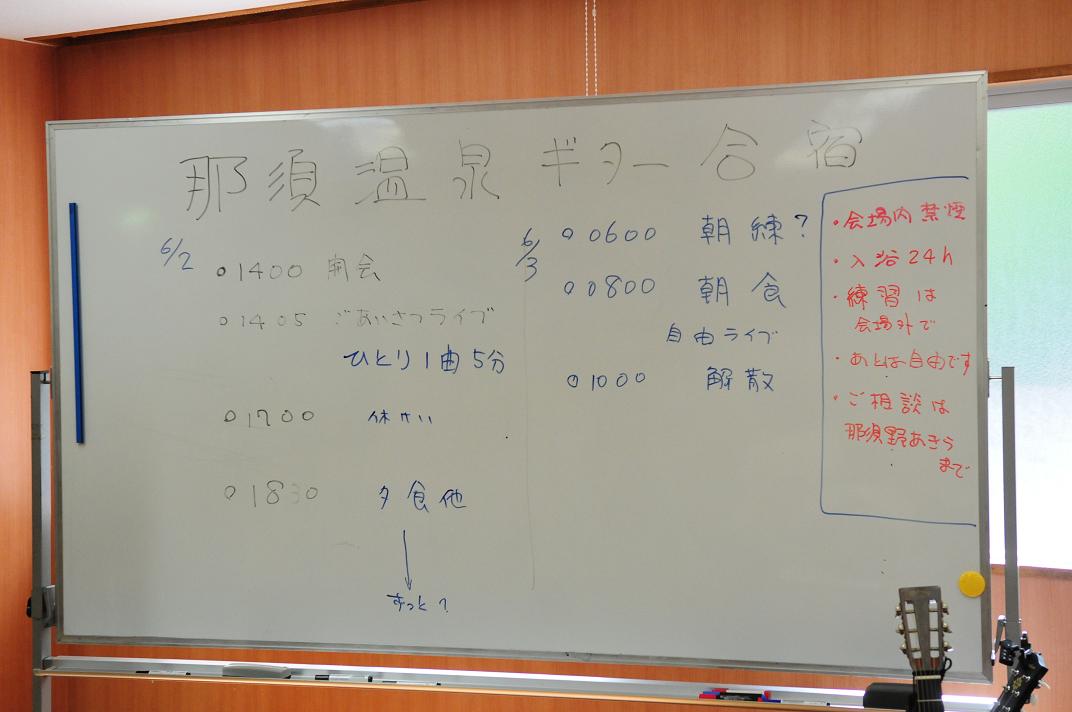 那須温泉ギター合宿
6/2
○1400 開会
○1405 ごあいさつライブ
ひとり1曲5分
○1700 休けい
○1830 夕食他
ずっと?
6/3
○0600 朝練?
○0800 朝食
自由ライブ
○1000 解散
・会場内禁煙
・入浴24h
・練習は
会場外で
・あとは自由です
・ご相談は
那須野あきら
まで